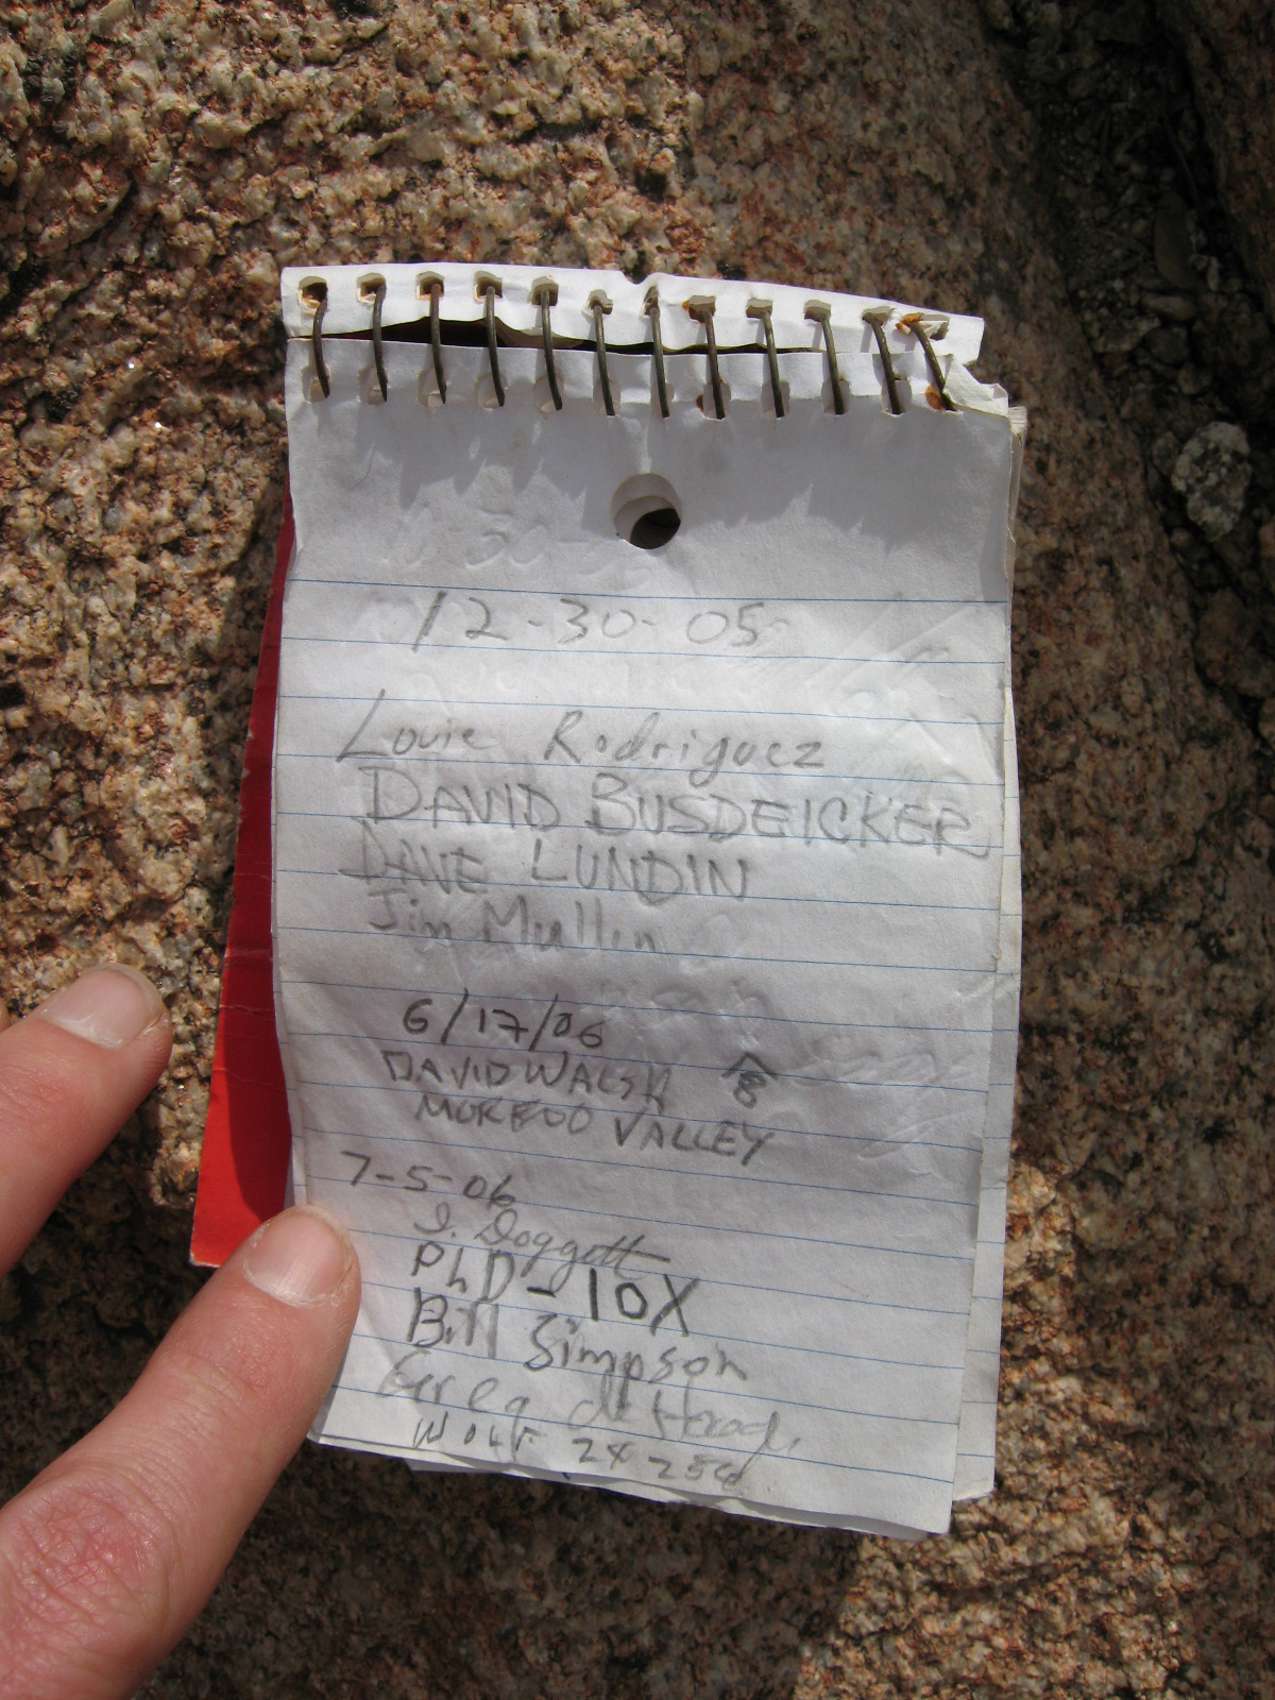 12-30-05
Louie Rodriguez
DAVID BUSDEICKER
DAVE LUNDIN
Jim Mullin
6/17/06
DAVID WALSH
VALLEY
7-5-06
J. Doggett
PLD-10X
Bill Simpson
Greg
WOLF 24-250